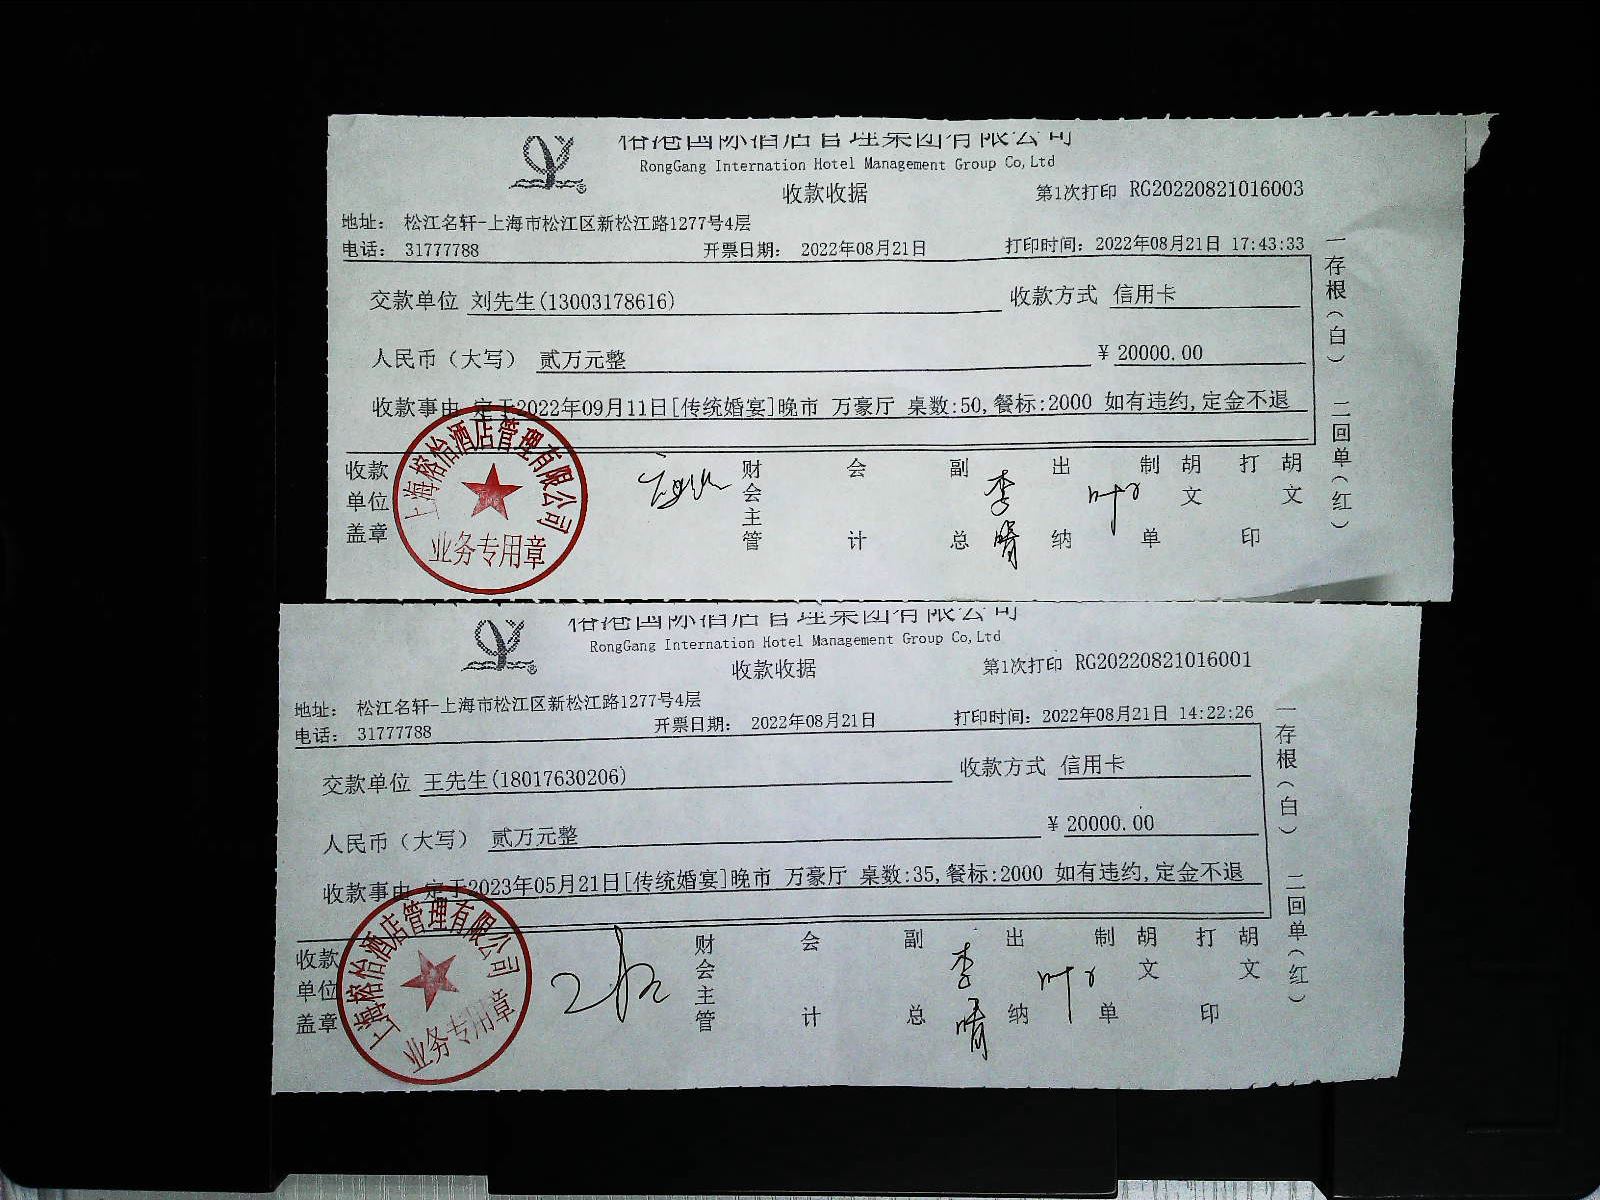 榕港国际酒店管理集团有限公司
RongGang Internation Hotel Management Group Co,Ltd
收款收据 第1次打印 RG20220821016003
地址： 松江名轩-上海市松江区新松江路1277号4层
电话： 31777788 开票日期： 2022年08月21日 打印时间： 2022年08月21日 17:43:33
交款单位 刘先生(13003178616) 收款方式 信用卡
人民币（大写） 贰万元整 ¥ 20000.00
收款事由 定于2022年09月11日[传统婚宴]晚市 万豪厅 桌数:50,餐标:2000 如有违约,定金不退
收款单位盖章 财会主管 会计 副总 李晴 出纳 叶 制单 胡文 打印 胡文
上海榕怡酒店管理有限公司
业务专用章
一存根（白） 二回单（红）
榕港国际酒店管理集团有限公司
RongGang Internation Hotel Management Group Co,Ltd
收款收据 第1次打印 RG20220821016001
地址： 松江名轩-上海市松江区新松江路1277号4层
电话： 31777788 开票日期： 2022年08月21日 打印时间： 2022年08月21日 14:22:26
交款单位 王先生(18017630206) 收款方式 信用卡
人民币（大写） 贰万元整 ¥ 20000.00
收款事由 定于2023年05月21日[传统婚宴]晚市 万豪厅 桌数:35,餐标:2000 如有违约,定金不退
收款单位盖章 财会主管 会计 副总 李晴 出纳 叶 制单 胡文 打印 胡文
上海榕怡酒店管理有限公司
业务专用章
一存根（白） 二回单（红）